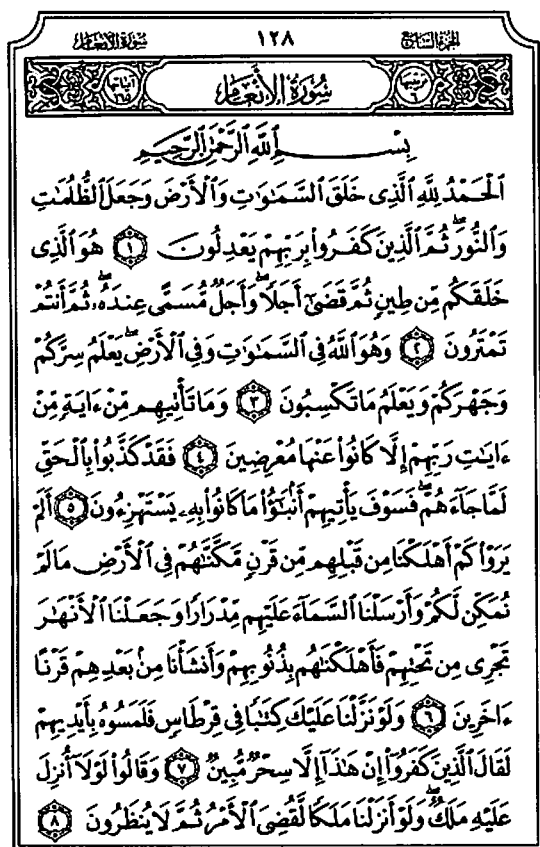 سورة الأنعام ١٢٨ الجزء السابع
آياتها ١٦٥ سُورَةُ الأَنْعَامِ ترتيبها ٦
بِسْمِ ٱللَّهِ ٱلرَّحْمَٰنِ ٱلرَّحِيمِ
ٱلْحَمْدُ لِلَّهِ ٱلَّذِى خَلَقَ ٱلسَّمَٰوَٰتِ وَٱلْأَرْضَ وَجَعَلَ ٱلظُّلُمَٰتِ
وَٱلنُّورَۖ ثُمَّ ٱلَّذِينَ كَفَرُوا۟ بِرَبِّهِمْ يَعْدِلُونَ ١ هُوَ ٱلَّذِى
خَلَقَكُم مِّن طِينٍ ثُمَّ قَضَىٰٓ أَجَلًاۖ وَأَجَلٌ مُّسَمًّى عِندَهُۥۖ ثُمَّ أَنتُمْ
تَمْتَرُونَ ٢ وَهُوَ ٱللَّهُ فِى ٱلسَّمَٰوَٰتِ وَفِى ٱلْأَرْضِۖ يَعْلَمُ سِرَّكُمْ
وَجَهْرَكُمْ وَيَعْلَمُ مَا تَكْسِبُونَ ٣ وَمَا تَأْتِيهِم مِّنْ ءَايَةٍ مِّنْ
ءَايَٰتِ رَبِّهِمْ إِلَّا كَانُوا۟ عَنْهَا مُعْرِضِينَ ٤ فَقَدْ كَذَّبُوا۟ بِٱلْحَقِّ
لَمَّا جَآءَهُمْۖ فَسَوْفَ يَأْتِيهِمْ أَنۢبَٰٓؤُا۟ مَا كَانُوا۟ بِهِۦ يَسْتَهْزِءُونَ ٥ أَلَمْ
يَرَوْا۟ كَمْ أَهْلَكْنَا مِن قَبْلِهِم مِّن قَرْنٍ مَّكَّنَّٰهُمْ فِى ٱلْأَرْضِ مَا لَمْ
نُمَكِّن لَّكُمْ وَأَرْسَلْنَا ٱلسَّمَآءَ عَلَيْهِم مِّدْرَارًا وَجَعَلْنَا ٱلْأَنْهَٰرَ
تَجْرِى مِن تَحْتِهِمْ فَأَهْلَكْنَٰهُم بِذُنُوبِهِمْ وَأَنشَأْنَا مِنۢ بَعْدِهِمْ قَرْنًا
ءَاخَرِينَ ٦ وَلَوْ نَزَّلْنَا عَلَيْكَ كِتَٰبًا فِى قِرْطَاسٍ فَلَمَسُوهُ بِأَيْدِيهِمْ
لَقَالَ ٱلَّذِينَ كَفَرُوٓا۟ إِنْ هَٰذَآ إِلَّا سِحْرٌ مُّبِينٌ ٧ وَقَالُوا۟ لَوْلَآ أُنزِلَ
عَلَيْهِ مَلَكٌۖ وَلَوْ أَنزَلْنَا مَلَكًا لَّقُضِىَ ٱلْأَمْرُ ثُمَّ لَا يُنظَرُونَ ٨